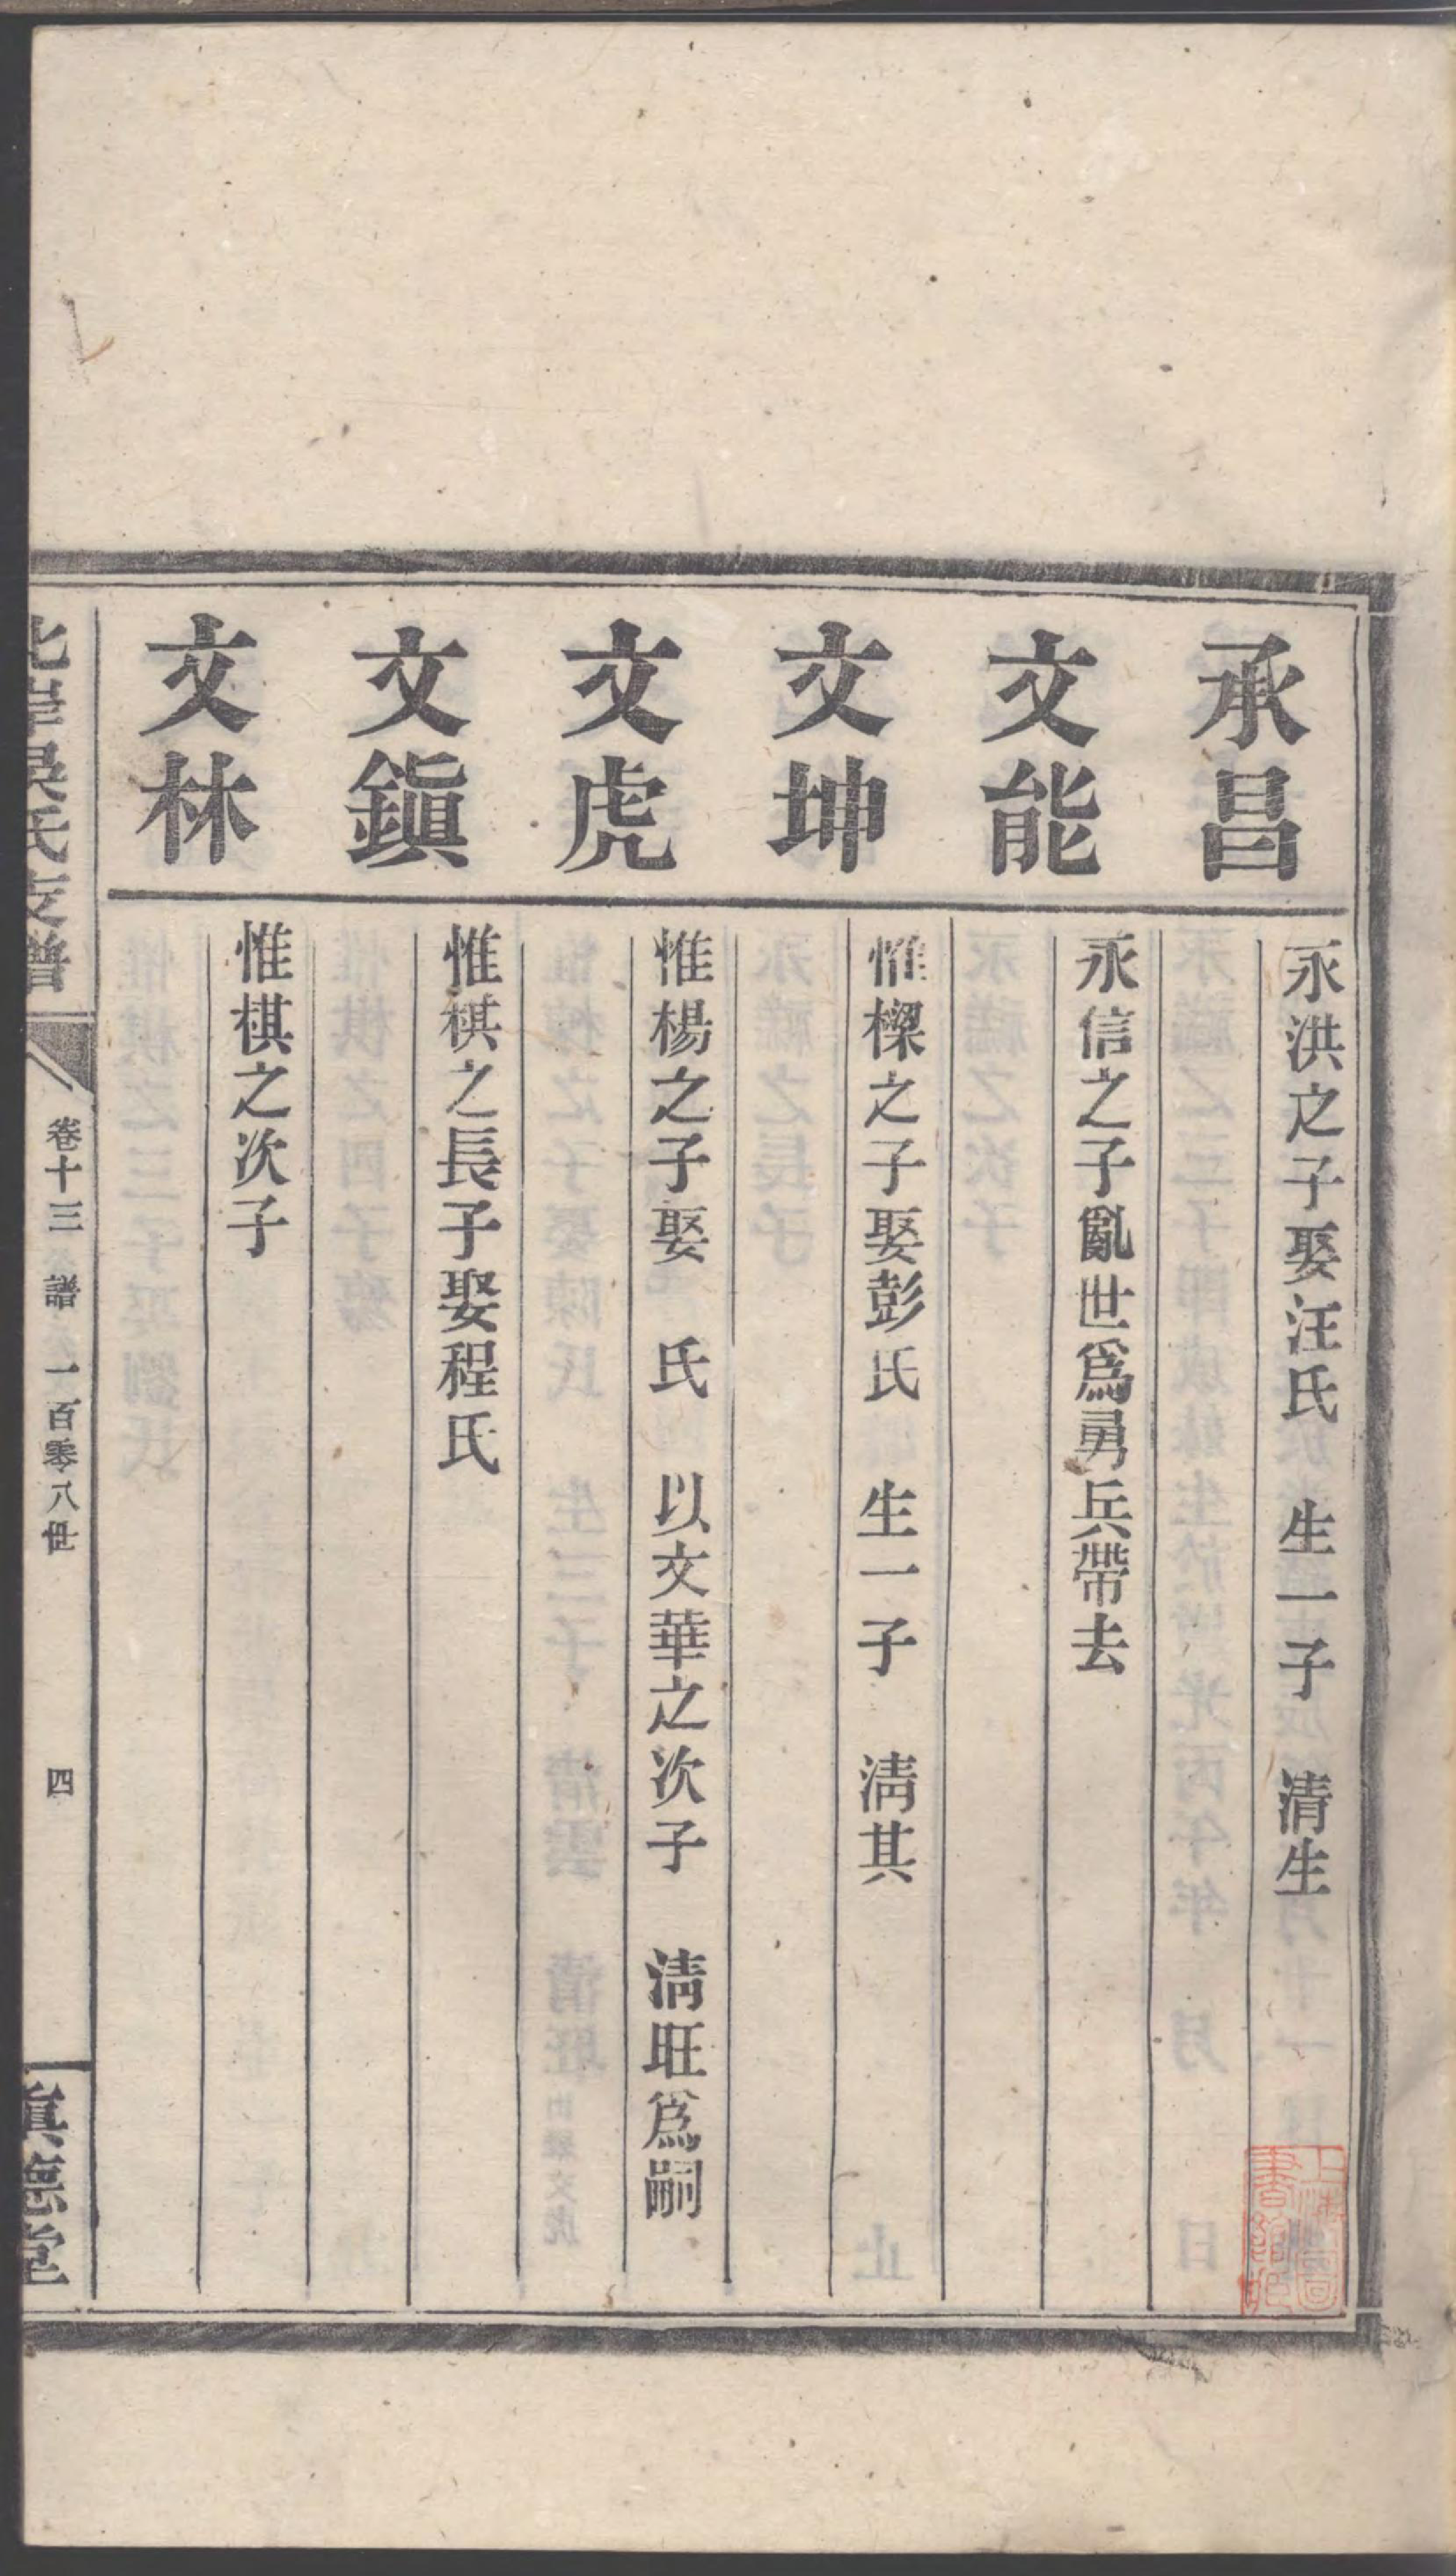 承昌
永洪之子娶汪氏 生一子 清生
文能
永信之子亂世爲勇兵帶去
文坤
惟樑之子娶彭氏 生一子 清其
文虎
惟楊之子娶 氏 以文華之次子 清旺爲嗣
文鎭
惟棋之長子娶程氏
文林
惟棋之次子
北岸吳氏支譜
卷十三 譜 一百零八世 四
眞德堂
上海圖書館